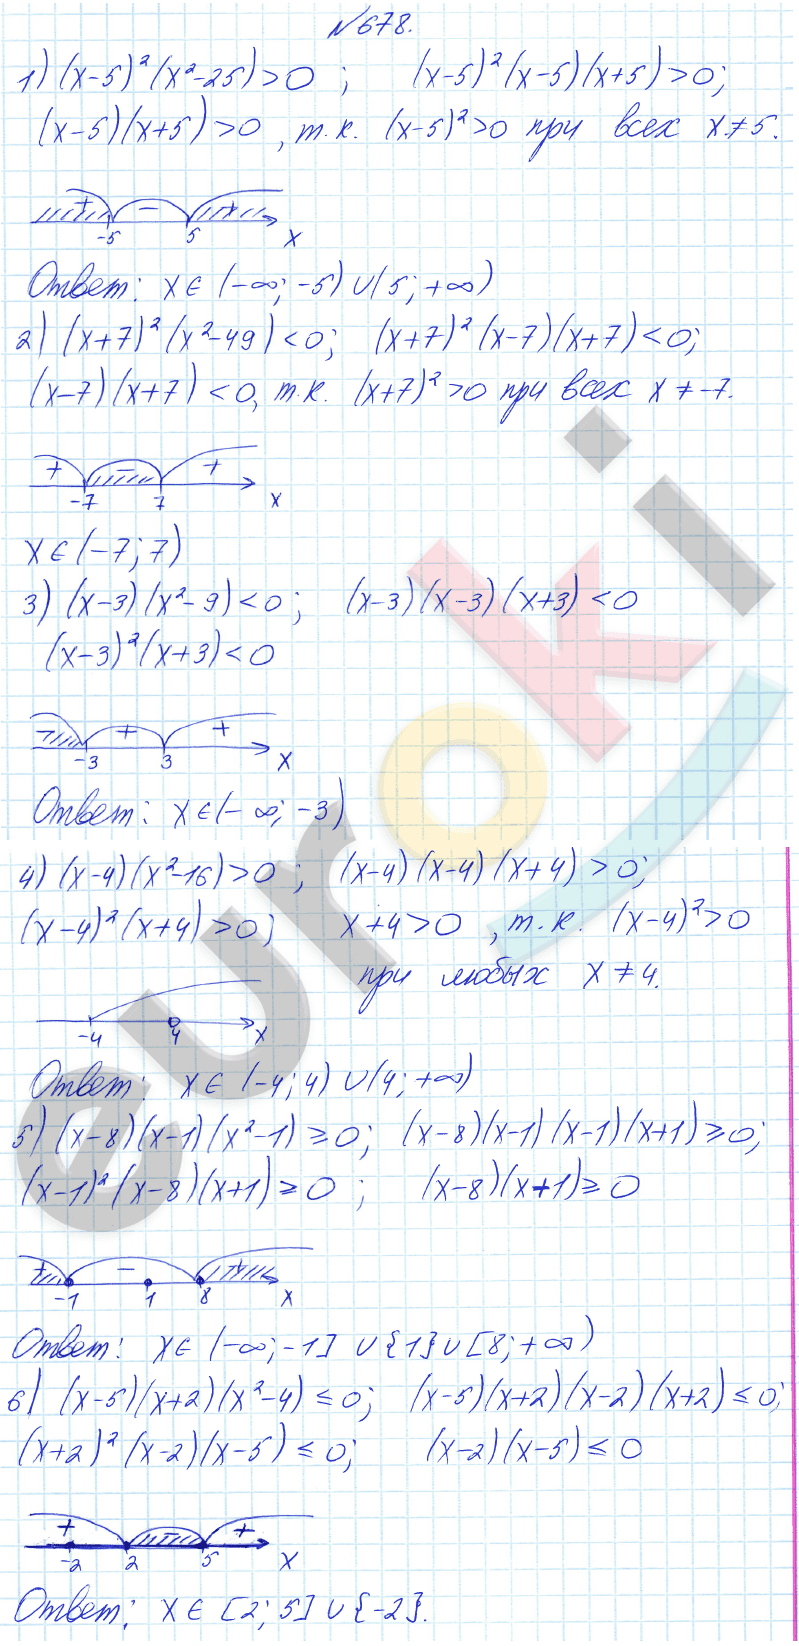 №678.
1) (x-5)²(x²-25)>0 ; (x-5)²(x-5)(x+5)>0;
(x-5)(x+5)>0 , т.к. (x-5)²>0 при всех x≠5.
+ - +
-5 5 x
Ответ: x∈(-∞;-5)∪(5;+∞)
2) (x+7)²(x²-49)<0; (x+7)²(x-7)(x+7)<0;
(x-7)(x+7)<0, т.к. (x+7)²>0 при всех x≠-7.
+ - +
-7 7 x
x∈(-7;7)
3) (x-3)(x²-9)<0; (x-3)(x-3)(x+3)<0
(x-3)²(x+3)<0
- + +
-3 3 x
Ответ: x∈(-∞;-3)
4) (x-4)(x²-16)>0 ; (x-4)(x-4)(x+4)>0;
(x-4)²(x+4)>0; x+4>0 , т.к. (x-4)²>0
при любых x≠4.
-4 4 x
Ответ: x∈(-4;4)∪(4;+∞)
5) (x-8)(x-1)(x²-1)≥0; (x-8)(x-1)(x-1)(x+1)≥0;
(x-1)²(x-8)(x+1)≥0 ; (x-8)(x+1)≥0
+ - +
-1 1 8 x
Ответ: x∈(-∞;-1]∪{1}∪[8;+∞)
6) (x-5)(x+2)(x²-4)≤0; (x-5)(x+2)(x-2)(x+2)≤0;
(x+2)²(x-2)(x-5)≤0; (x-2)(x-5)≤0
+ - +
-2 2 5 x
Ответ: x∈[2;5]∪{-2}.
euroki